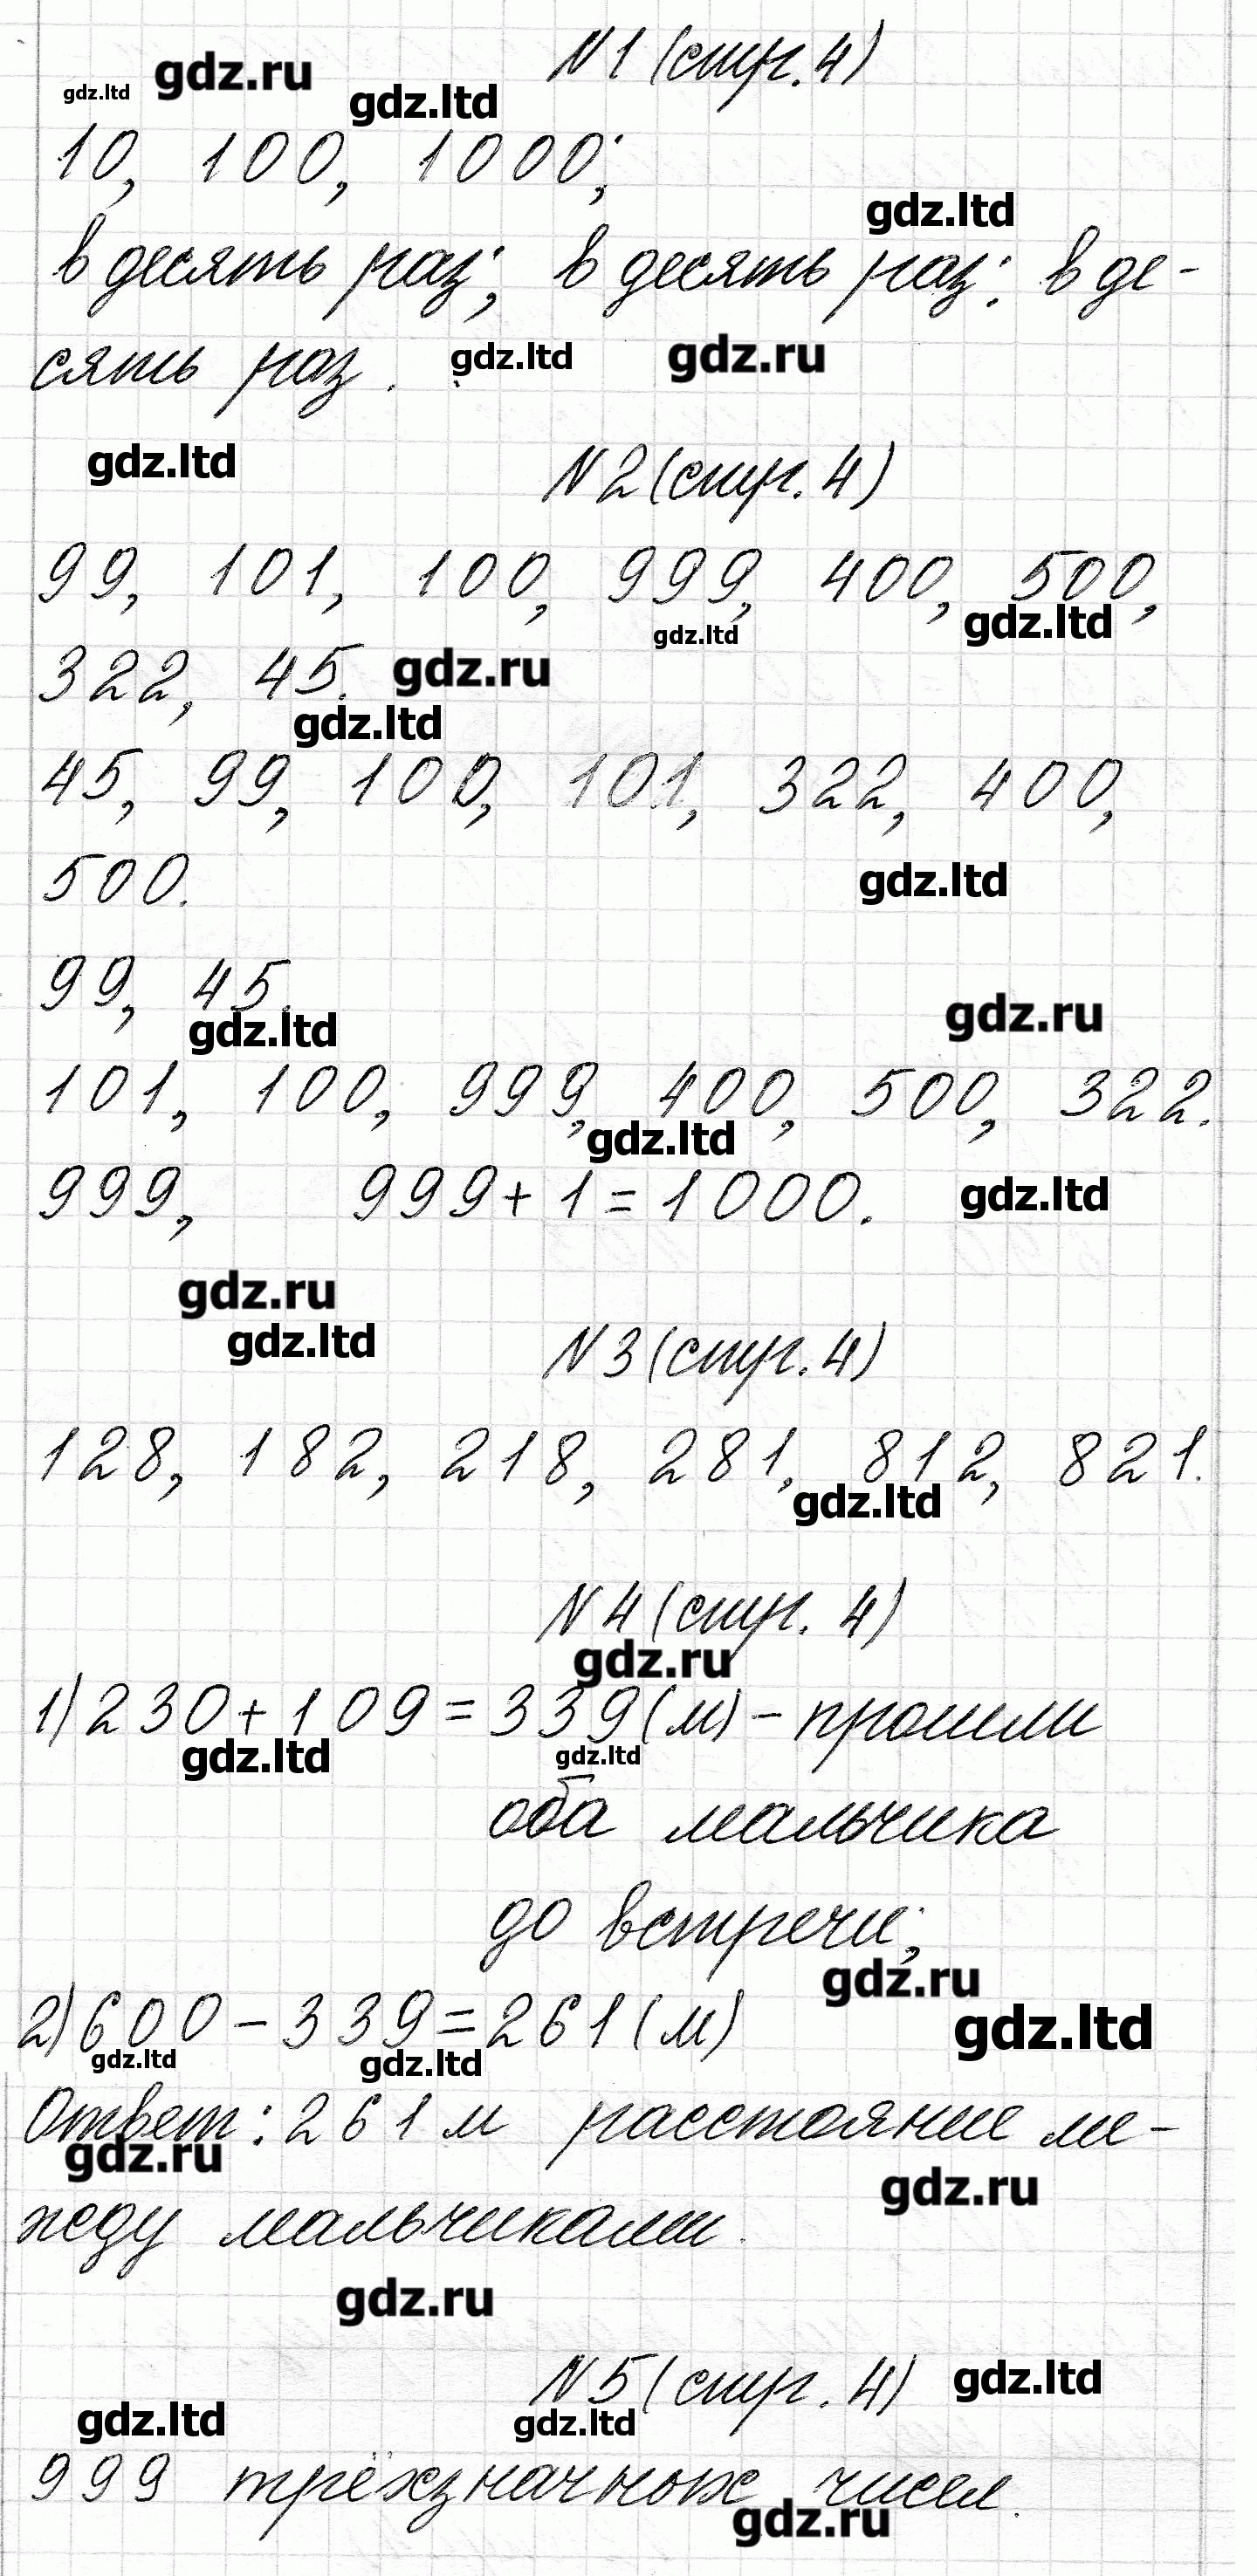 N1 (стр. 4)
gdz.ltd gdz.ru gdz.ltd
10, 100, 1000;
gdz.ltd
в десять раз; в десять раз; в де-
сять раз. gdz.ltd gdz.ru
gdz.ltd N2 (стр. 4)
99, 101, 100, 999, 400, 500,
gdz.ltd gdz.ltd
322, 45. gdz.ru
gdz.ltd
45, 99, 100, 101, 322, 400,
500. gdz.ltd
99, 45.
gdz.ltd gdz.ru
101, 100, 999, 400, 500, 322.
gdz.ltd
999, 999+1=1000. gdz.ltd
gdz.ru
gdz.ltd N3 (стр. 4)
128, 182, 218, 281, 812, 821.
gdz.ltd
N4 (стр. 4)
gdz.ru
1) 230+109=339(м) - прошли
gdz.ltd gdz.ltd
оба мальчика
до встречи;
gdz.ru
2) 600-339=261(м) gdz.ltd
gdz.ltd gdz.ltd
Ответ: 261 м расстояние ме-
gdz.ru gdz.ru
жеду мальчиками.
gdz.ru
N5 (стр. 4) gdz.ltd
gdz.ltd gdz.ltd
999 трёхзначных чисел.
gdz.ru